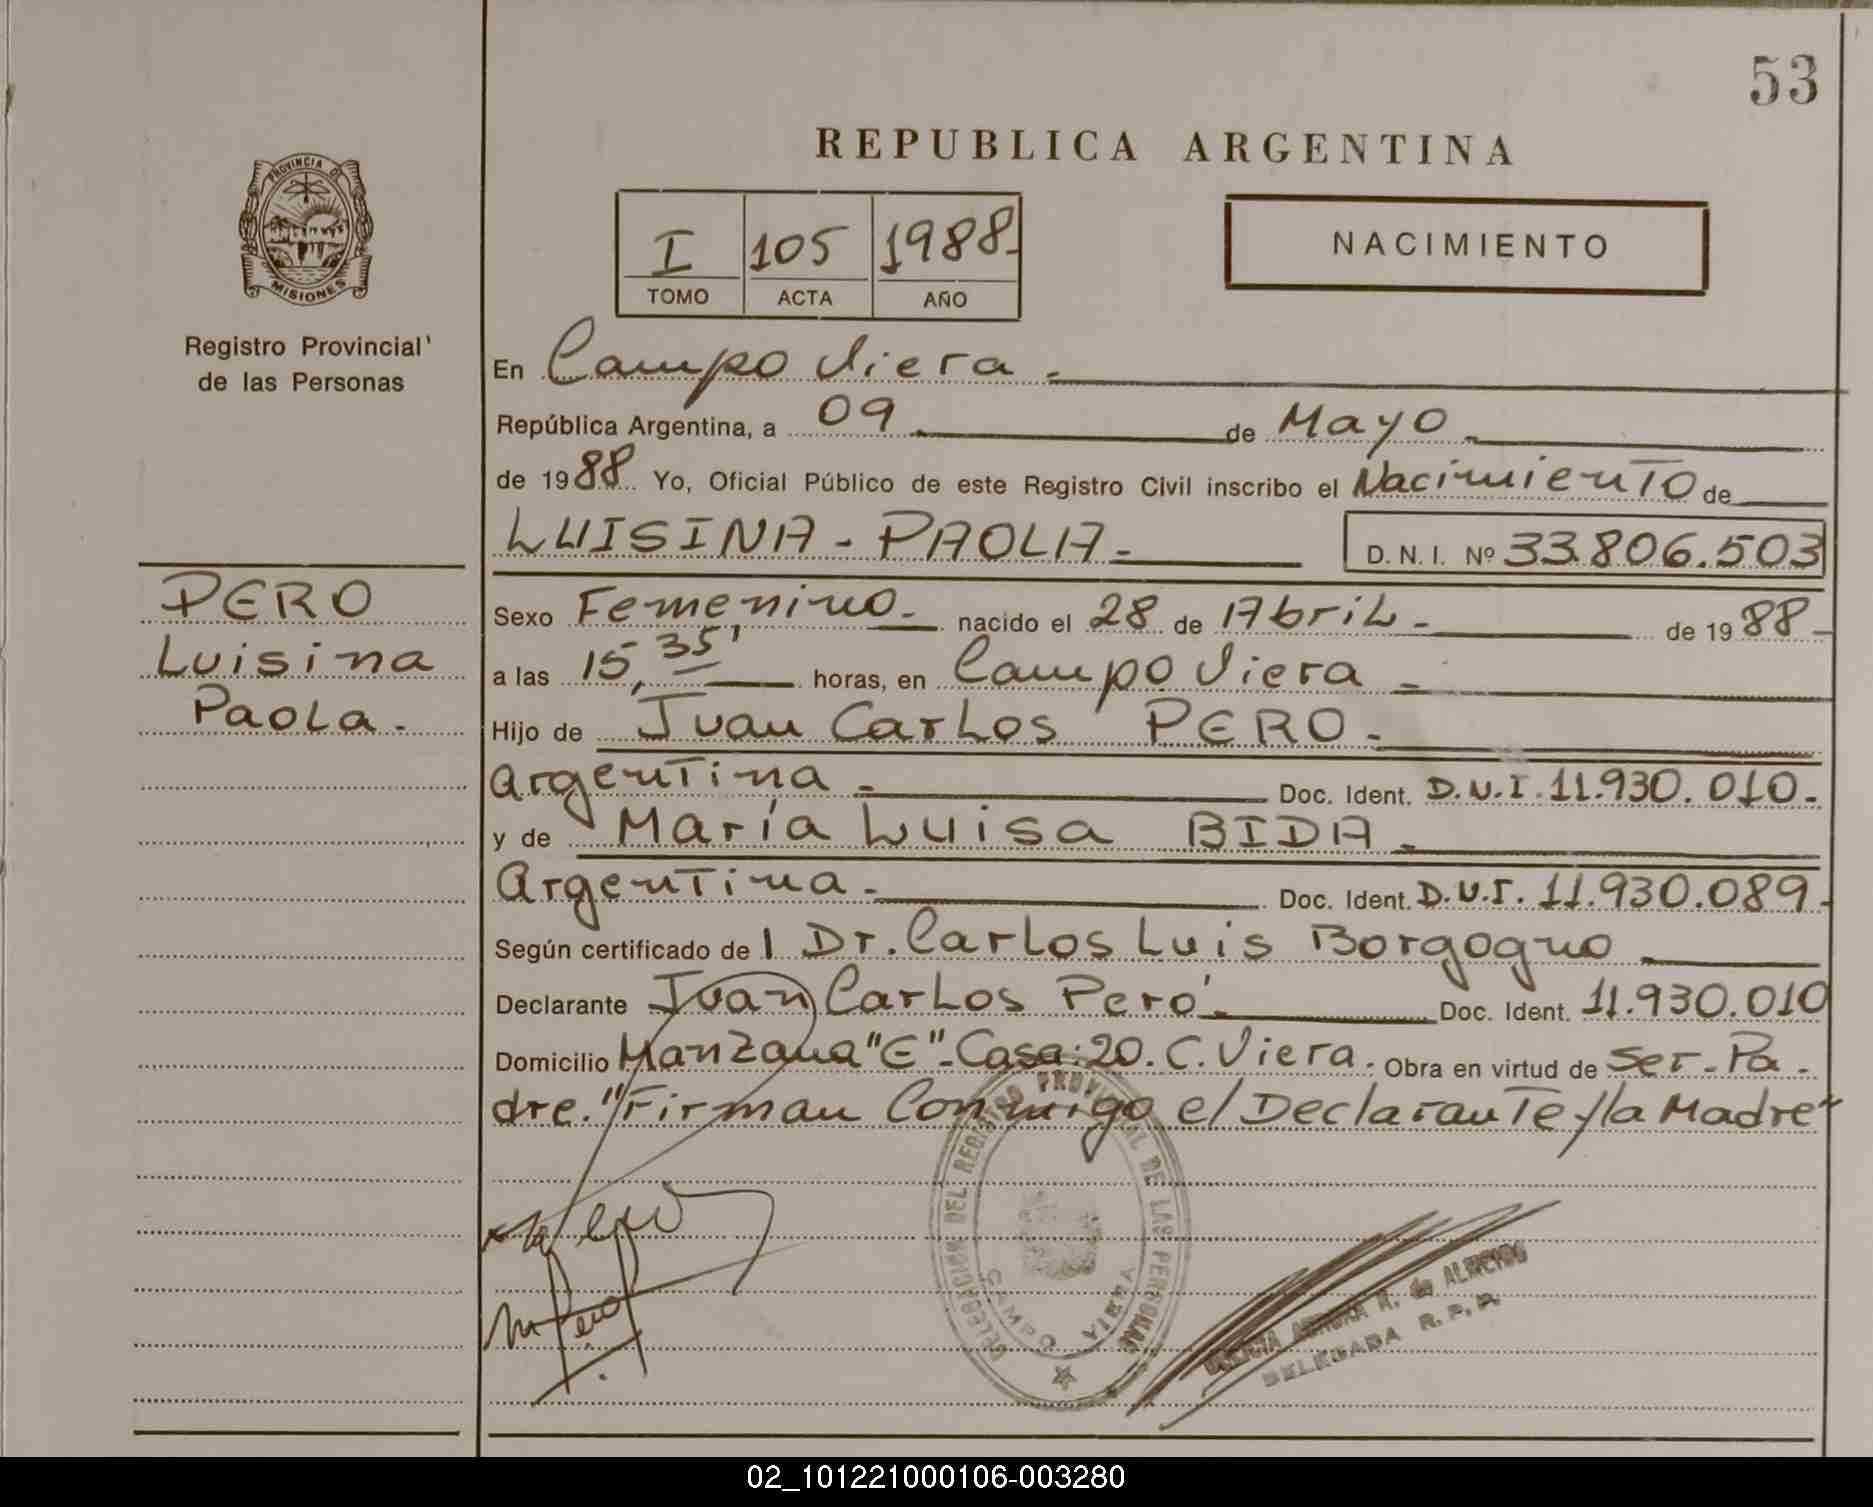 53
REPUBLICA ARGENTINA
PROVINCIA DE
MISIONES
Registro Provincial
de las Personas
I 105 1988-
TOMO ACTA AÑO
NACIMIENTO
En Campo Viera -
República Argentina, a 09 de Mayo -
de 1988 Yo, Oficial Público de este Registro Civil inscribo el Nacimiento de
LUISINA - PAOLA -
D. N. I. Nº 33.806.503
PERO
Luisina
Paola -
Sexo Femenino - nacido el 28 de Abril - de 1988 -
a las 15,35' horas, en Campo Viera -
Hijo de Juan Carlos PERO -
Argentina - Doc. Ident. D.N.I. 11.930.010 -
y de María Luisa BIDA -
Argentina - Doc. Ident. D.N.I. 11.930.089 -
Según certificado de l Dr. Carlos Luis Borgogno
Declarante Juan Carlos Pero - Doc. Ident. 11.930.010
Domicilio Manzana "E" - Casa: 20. C. Viera. Obra en virtud de Ser - Pa -
dre. "Firman Conmigo el Declarante y la Madre"
DELEGACION DEL REGISTRO PROVINCIAL DE LAS PERSONAS
CAMPO VIERA
DELEGADA R. P. P.
02_101221000106-003280